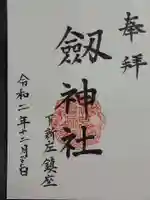 奉拝
劔神社
下新庄鎮座
令和二年十二月三日